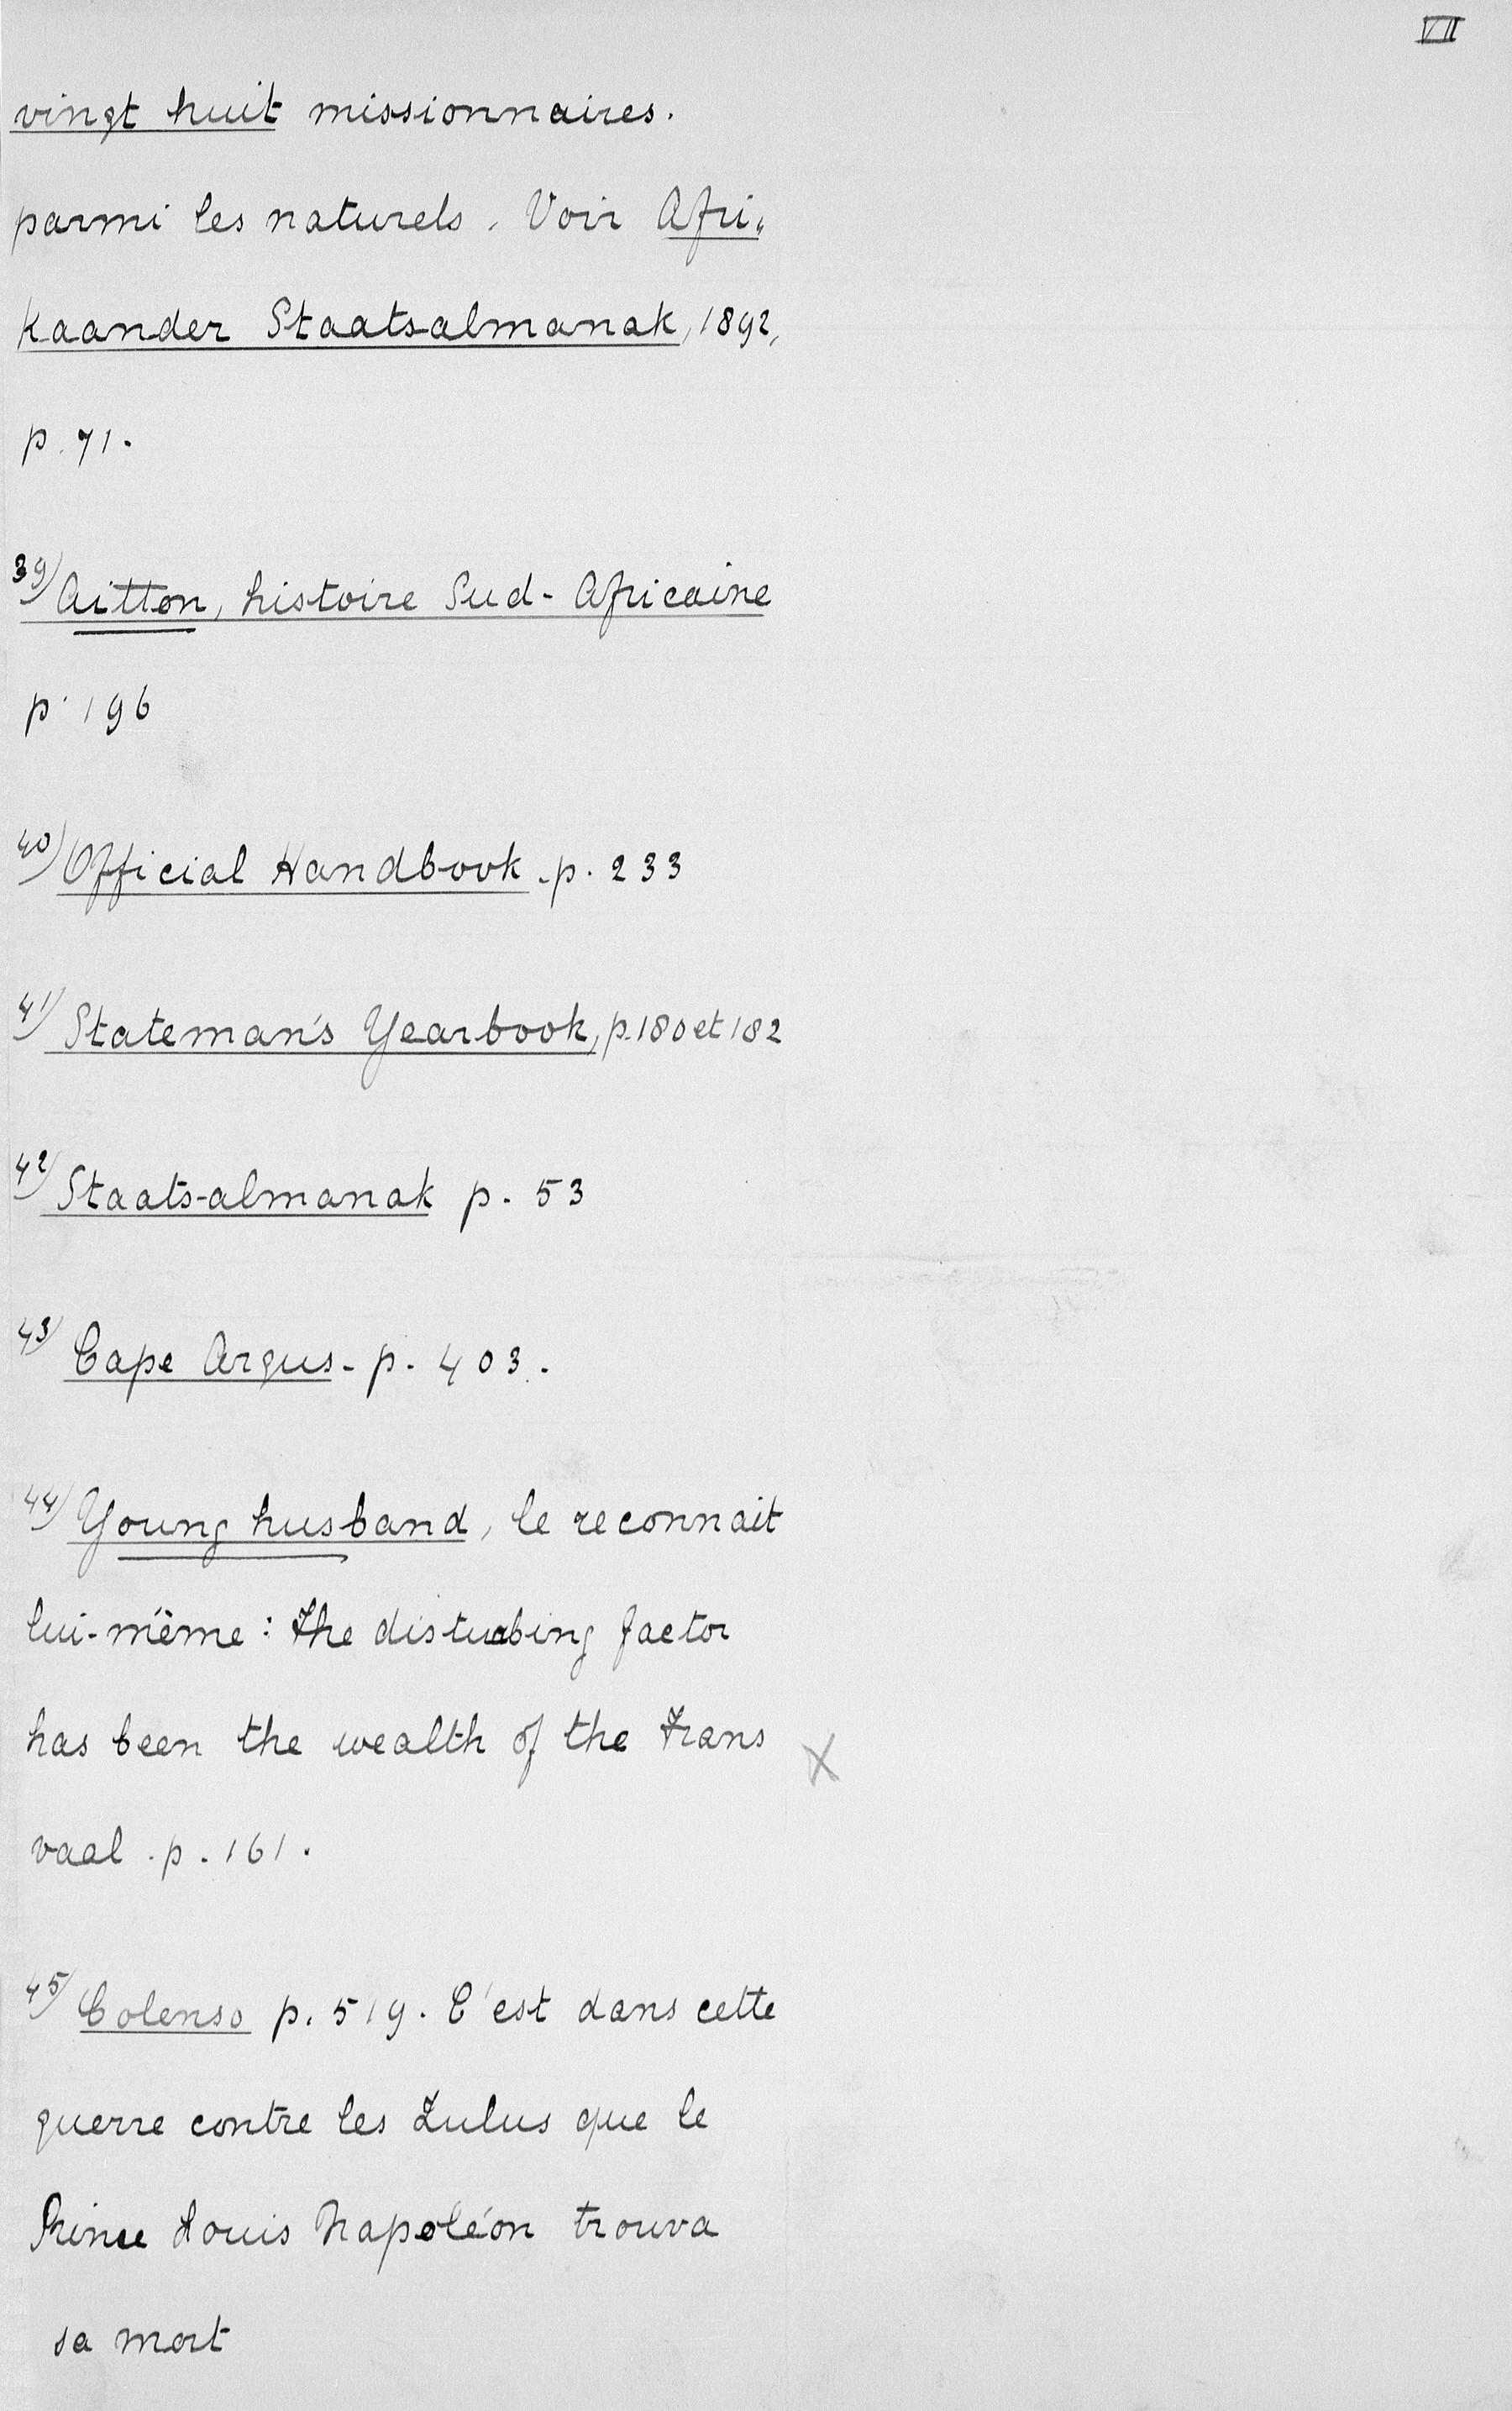 VII
vingt huit missionnaires.
parmi les naturels. Voir Afri„
kaander Staatsalmanak, 1892,
p. 71.
39) Aitton, histoire Sud-Africaine
p. 196
40) Official Handbook - p. 233
41) Stateman's Yearbook, p. 180 et 182
42) Staats-almanak p. 53
43) Cape Argus - p. 403.
44) Young husband, le reconnait
lui-même : the disturbing factor
has been the wealth of the Trans X
vaal . p. 161.
45) Colenso p. 519. C'est dans cette
guerre contre les Zulus que le
Prince Louis Napoléon trouva
sa mort